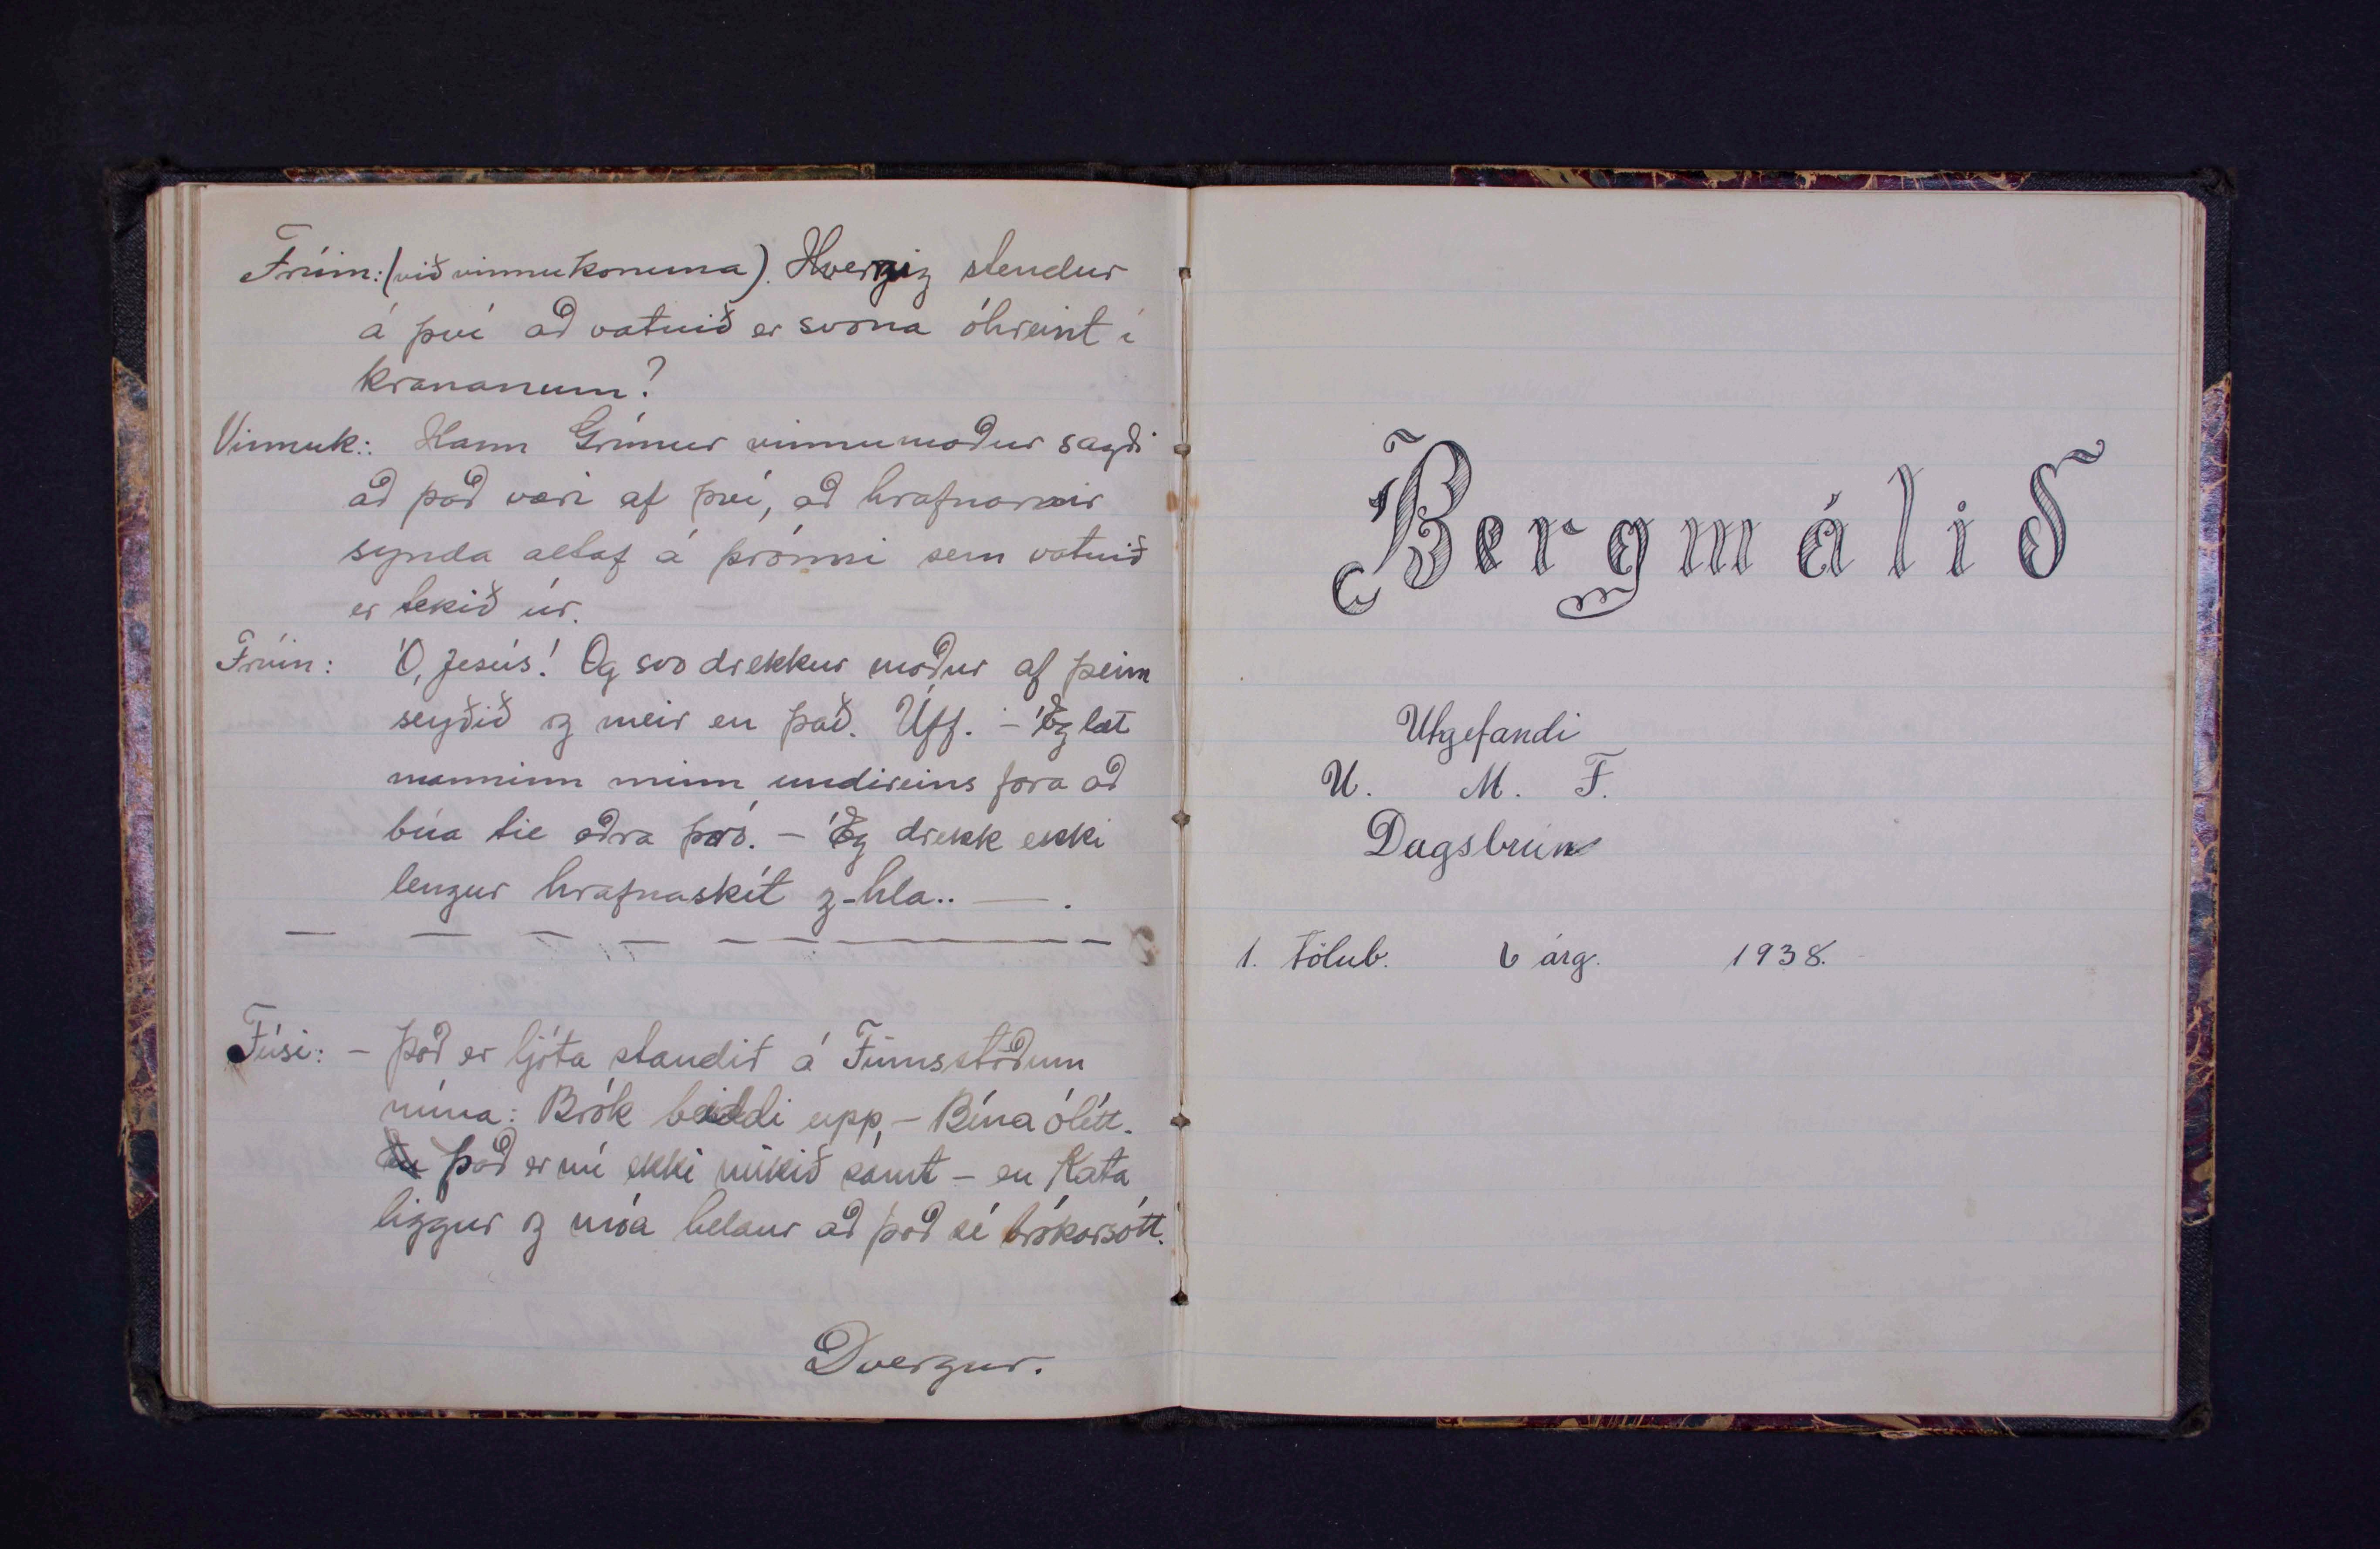 Frúin: (við vinnukonuna). Hvernig stendur
á því að vatnið er svona óhreint í
krananum?
Vinnuk.: Hann Grímur vinnumaður sagði
að það væri af því, að hrafnarnir
synda altaf á þrónni sem vatnið
er tekið úr.
Frúin: Ó, Jesús! Og svo drekkur maður af þeim
seyðið og meir en það. Úff. – Ég læt
manninn minn undireins fara að
búa til aðra þró. – Ég drekk ekki
lengur hrafnaskít og - hla.. — .
Fúsi: – Það er ljóta standið á Finnsstöðum
núna: Brók beiddi upp, – Bína ólétt.
Það er nú ekki mikið samt – en Kata
liggur og móa heldur að það sé brókarsótt.
Dvergur.
Bergmálið
Utgefandi
U. M. F.
Dagsbrún
1. tölub. 6 árg. 1938.